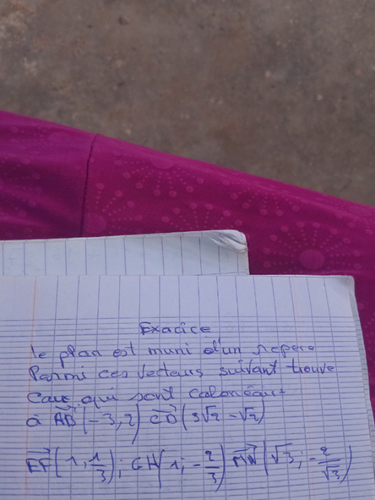 Exercice
le plan est muni d'un repère
Parmi ces vecteurs suivant trouve
Ceux qui sont colonéaux
à AB(-3,2) CD(3√2 -√2)
EF(1; 1/3); GH(1; -2/3) MN(√3; -2/√3)